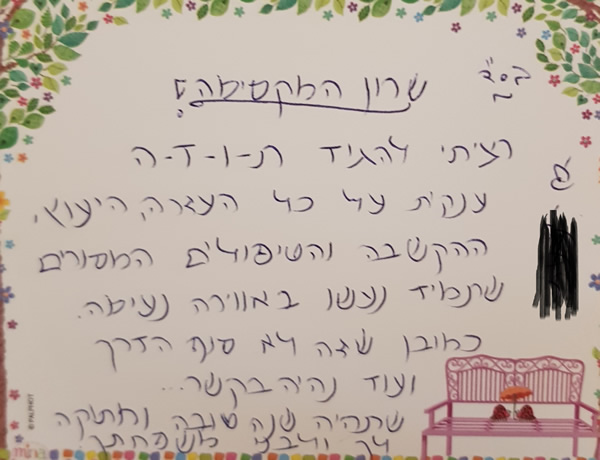 בס"ד
שרון המקסימה!
רציתי להגיד ת-ו-ד-ה
ענקית על כל העזרה, היעוץ,
ההקשבה והטיפולים המסורים
שתמיד נעשו באווירה נעימה.
כמובן שזה לא סוף הדרך
ועוד נהיה בקשר...
שתהיה שנה טובה ומתוקה
לך ולבני משפחתך!
© PALPHOT